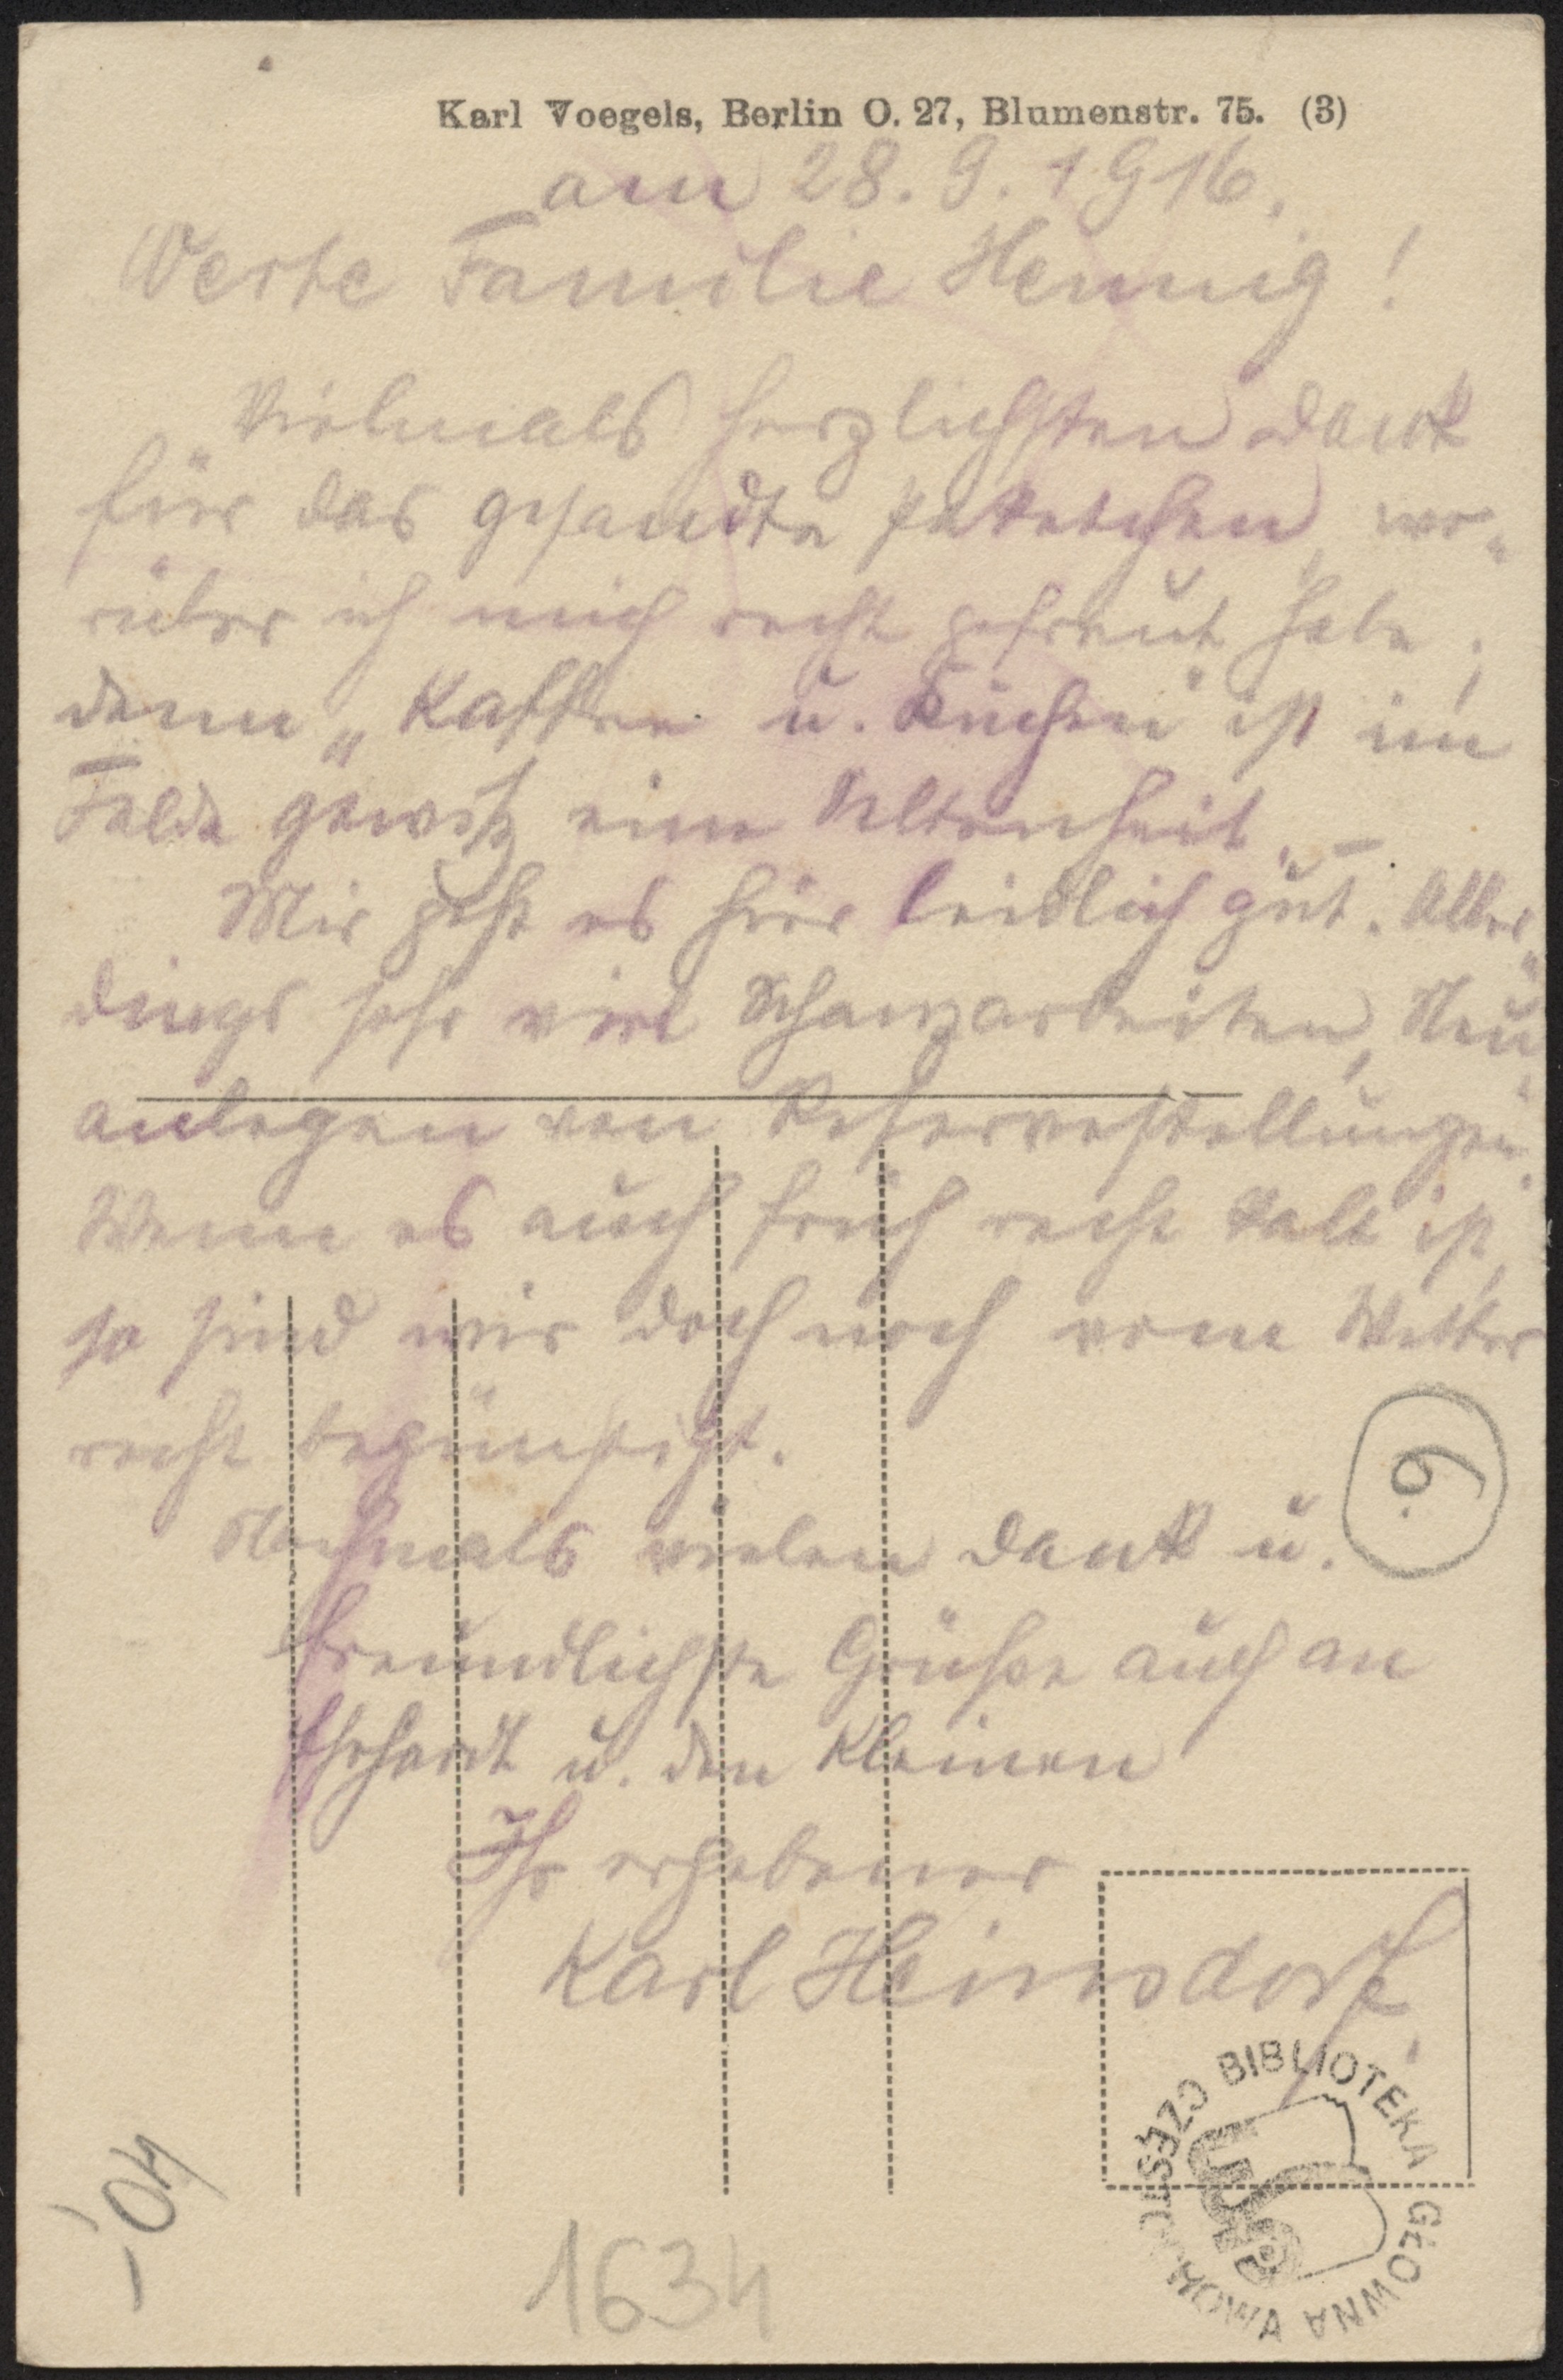 Karl Voegels, Berlin O. 27, Blumenstr. 75. (3)
am 28. 9. 1916.
Werte Familie Hennig!
Vielmals herzlichsten Dank
für das gesandte Paketchen, wo-
rüber ich mich recht gefreut habe;
denn „Kaffee u. Kuchen" ist im
Felde gewiß eine Seltenheit. –
Mir geht es hier leidlich gut. Aller-
dings sehr viel Schanzarbeiten, Neu-
anlegen von Reservestellungen.
Wenn es auch früh recht kalt ist,
so sind wir doch noch vom Wetter
recht begünstigt.
Nochmals vielen Dank u.
freundlichste Grüße auch an
Ehrhardt u. den Kleinen
Ihr ergebener
Karl Heinsdorf.
6.
1634
BIBLIOTEKA GŁÓWNA
CZĘSTOCHOWA